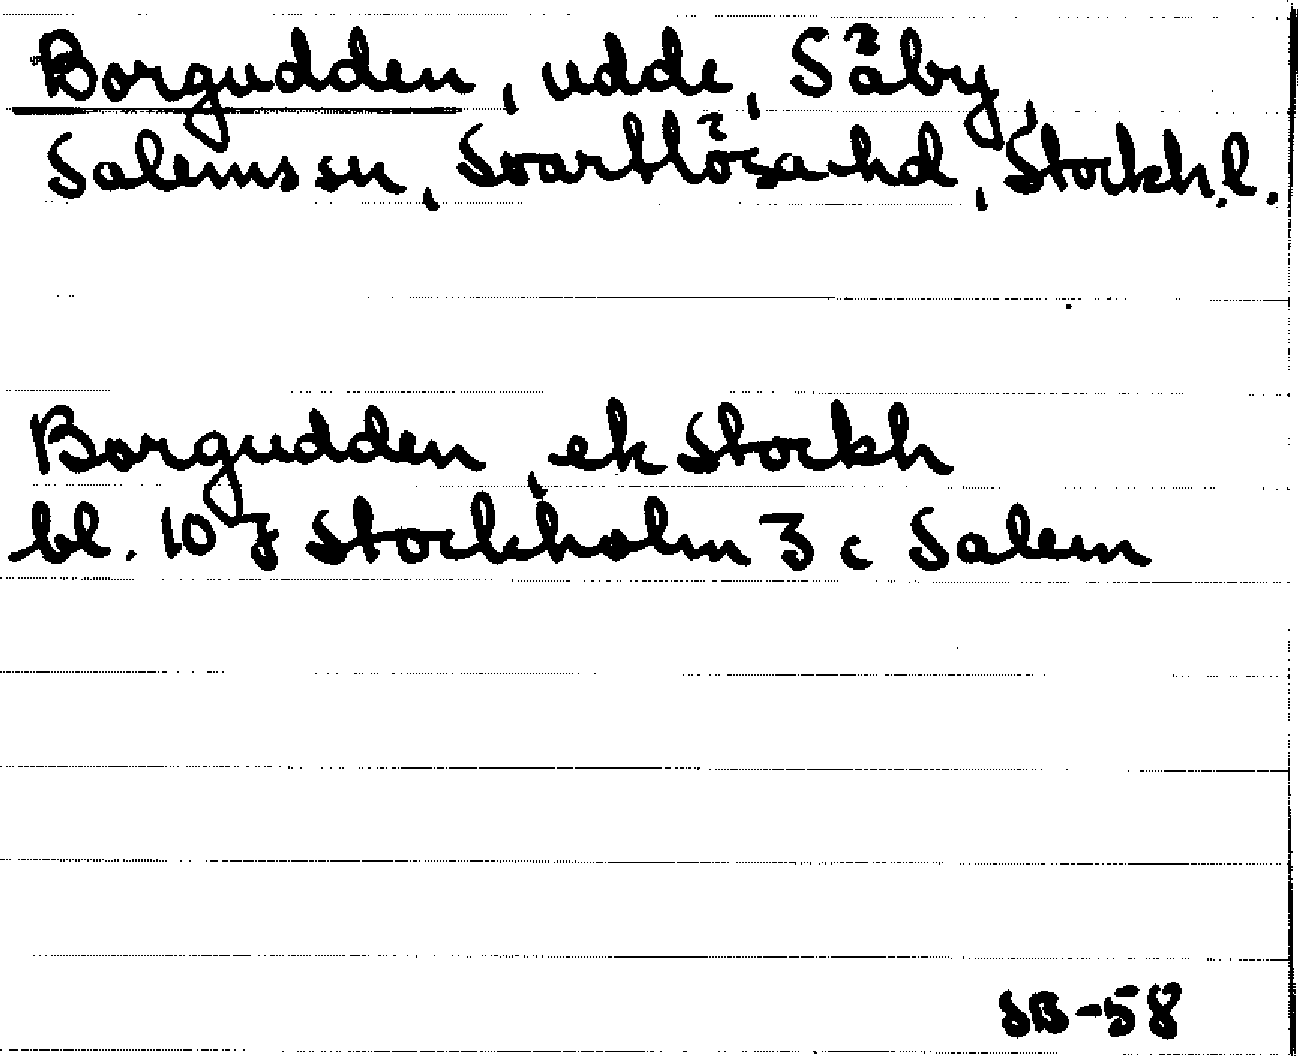 Borgudden, udde, Säby,
Salems sn, Svartlösa hd, Stockh.l.
Borgudden, ek Stockh
bl. 10 J Stockholm 3 c Salem
SB-58